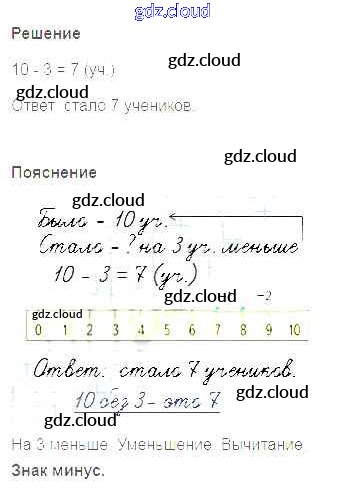 gdz.cloud
Решение
gdz.cloud
10 - 3 = 7 (уч.)
gdz.cloud
Ответ: стало 7 учеников.
gdz.cloud
Пояснение
gdz.cloud
Было - 10 уч.
Стало - ? на 3 уч. меньше
10 - 3 = 7 (уч.)
gdz.cloud -2
gdz.cloud
0 1 2 3 4 5 6 7 8 9 10
Ответ: стало 7 учеников.
gdz.cloud
10 без 3 - это 7
gdz.cloud
На 3 меньше. Уменьшение. Вычитание.
gdz.cloud
Знак минус.